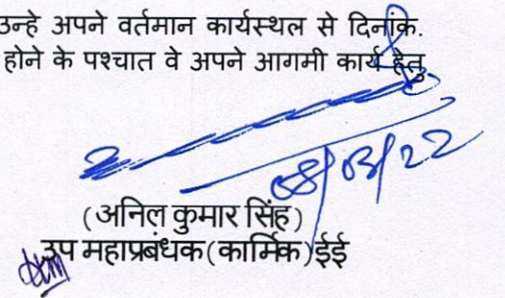 उन्हे अपने वर्तमान कार्यस्थल से दिनांक.
होने के पश्चात वे अपने आगामी कार्य हेतु
08/03/22
(अनिल कुमार सिंह)
उप महाप्रबंधक(कार्मिक)ईई